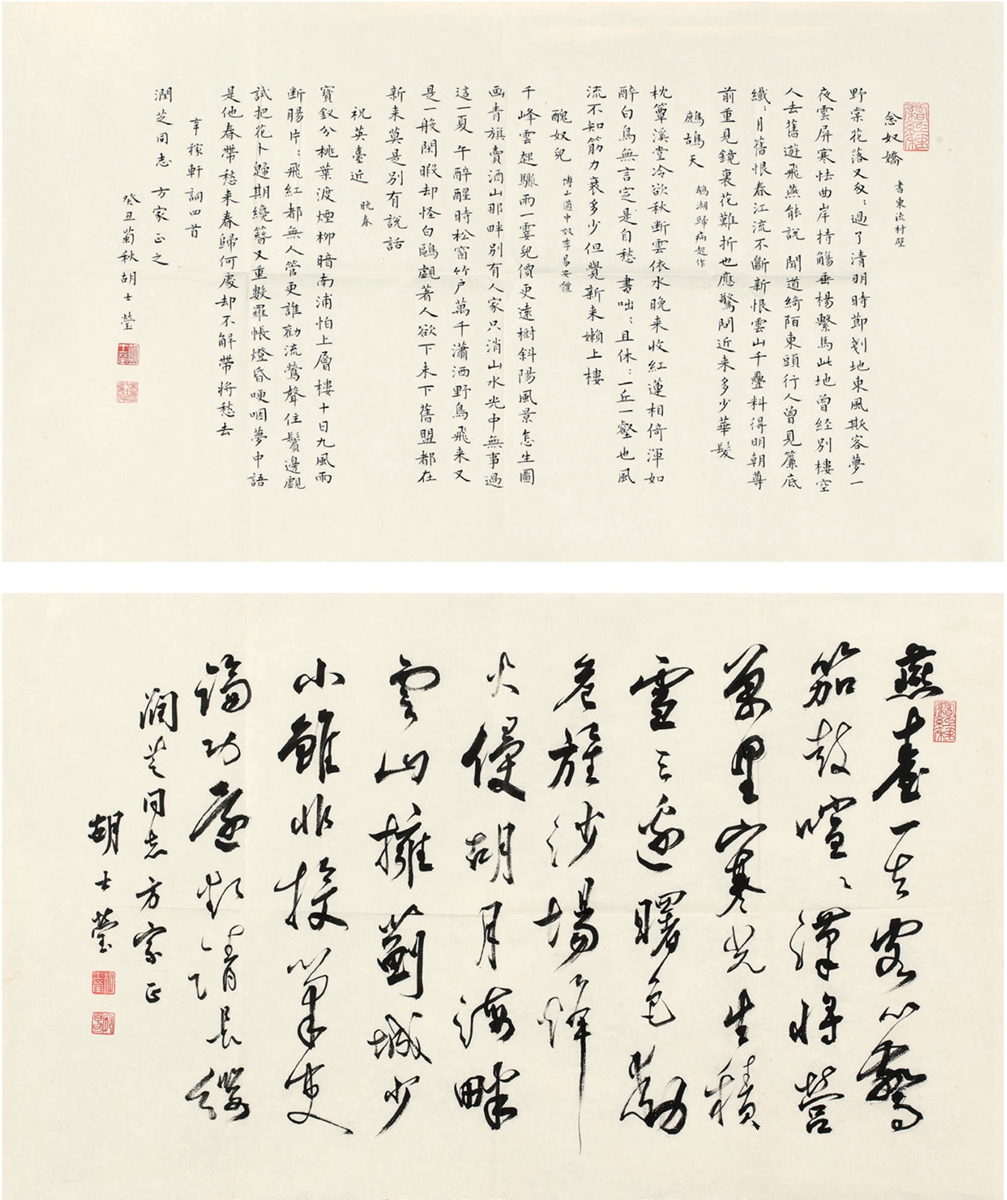 念奴嬌 書東流村壁
野棠花落又匆〻過了清明時節剗地東風欺客夢一
夜雲屏寒怯曲岸持觴垂楊繫馬此地曾經別樓空
人去舊遊飛燕能說 聞道綺陌東頭行人曾見簾底
纖〻月舊恨春江流不斷新恨雲山千疊料得明朝尊
前重見鏡裏花難折也應驚問近来多少華髮
鷓鴣天 鵝湖歸病起作
枕簟溪堂冷欲秋斷雲依水晚来收紅蓮相倚渾如
醉白鳥無言定是自愁 書咄〻且休〻一丘一壑也風
流不知筋力衰多少但覺新来嬾上樓
醜奴兒 博山道中效李易安體
千峰雲起驟雨一霎兒價更遠樹斜陽風景怎生圖
画青旗賣酒山那畔別有人家只消山水光中無事過
這一夏 午醉醒時松窗竹户萬千瀟洒野鳥飛来又
是一般閑暇却怪白鷗覷著人欲下未下舊盟都在
新来莫是別有說話
祝英臺近 晚春
寶釵分桃葉渡煙柳暗南浦怕上層樓十日九風雨
断腸片〻飛紅都無人管更誰勸流鶯聲住 鬢邊覷
試把花卜歸期纔簪又重數羅帳燈昏哽咽夢中語
是他春帶愁来春歸何處却不解帶將愁去
辛稼軒詞四首
潤芝同志 方家正之
癸丑菊秋胡士瑩
燕臺一去客心驚
笳鼓喧〻漢將營
萬里寒光生積
雪三邊曙色動
危旌沙場烽
火侵胡月海畔
雲山擁薊城少
小雖非投筆吏
論功還欲請長纓
潤芝同志方家正
胡士瑩